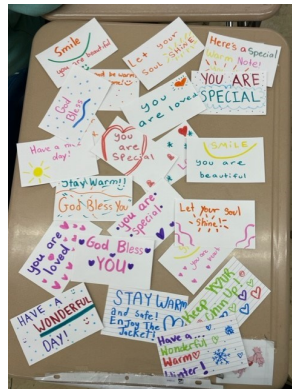 Smile
you are beautiful
Let your
Soul SHINE
Here's a Special
Warm Note!
YOU ARE
SPECIAL
God
Bless
you are loved
Have a nice
day!
you
are
Special
SMILE
you are
beautiful
Stay Warm!!
God Bless You
you are
special.
Let Your Soul
Shine!
you are
loved
God Bless
YOU
HAVE A
WONDERFUL
DAY!
STAY WARM
and Safe!
Enjoy The
Jacket!
Keep YOUR
Chin Up!
Have a...
Wonderful
Warm
Winter!